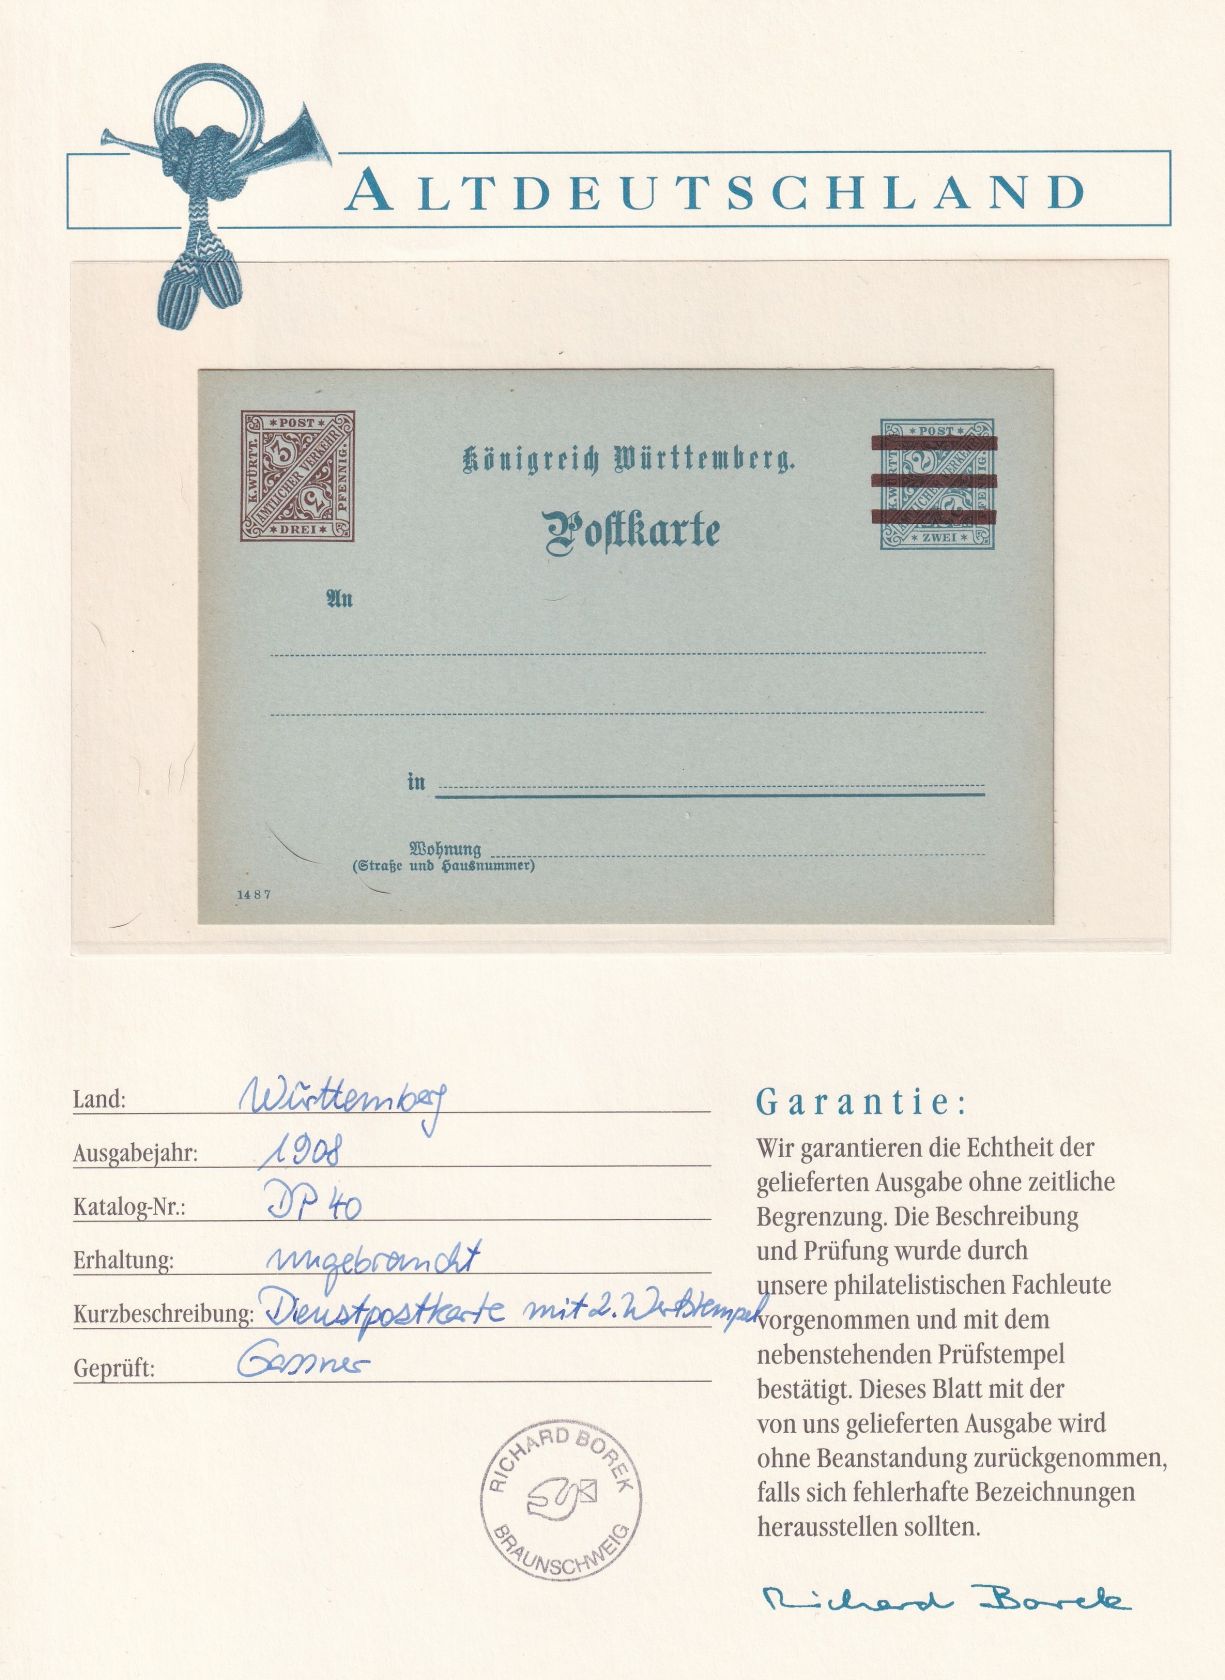 ALTDEUTSCHLAND
* POST *
K. WÜRTT.
3
AMTLICHER VERKEHR
3
PFENNIG
* DREI *
Königreich Württemberg.
Postkarte
* POST *
K. WÜRTT.
2
AMTLICHER VERKEHR
PFENNIG
* ZWEI *
An
in
Wohnung
(Straße und Hausnummer)
1487
Land: Württemberg
Ausgabejahr: 1908
Katalog-Nr.: DP 40
Erhaltung: ungebraucht
Kurzbeschreibung: Dienstpostkarte mit 2. Wertstempel
Geprüft: Gassner
RICHARD BOREK
BRAUNSCHWEIG
Garantie:
Wir garantieren die Echtheit der
gelieferten Ausgabe ohne zeitliche
Begrenzung. Die Beschreibung
und Prüfung wurde durch
unsere philatelistischen Fachleute
vorgenommen und mit dem
nebenstehenden Prüfstempel
bestätigt. Dieses Blatt mit der
von uns gelieferten Ausgabe wird
ohne Beanstandung zurückgenommen,
falls sich fehlerhafte Bezeichnungen
herausstellen sollten.
Richard Borek